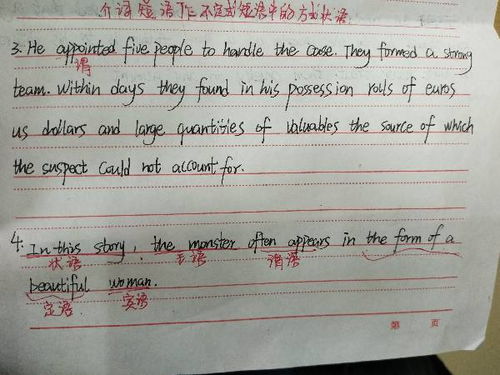 介词短语作不定式短语中的方式状语
3. He appointed five people to handle the case. They formed a strong
谓
team. Within days they found in his possession rolls of euros
us dollars and large quantities of valuables the source of which
the suspect could not account for.
4. In this story, the monster often appears in the form of a
状语 主语 谓语
beautiful woman.
定语 宾语
第 页